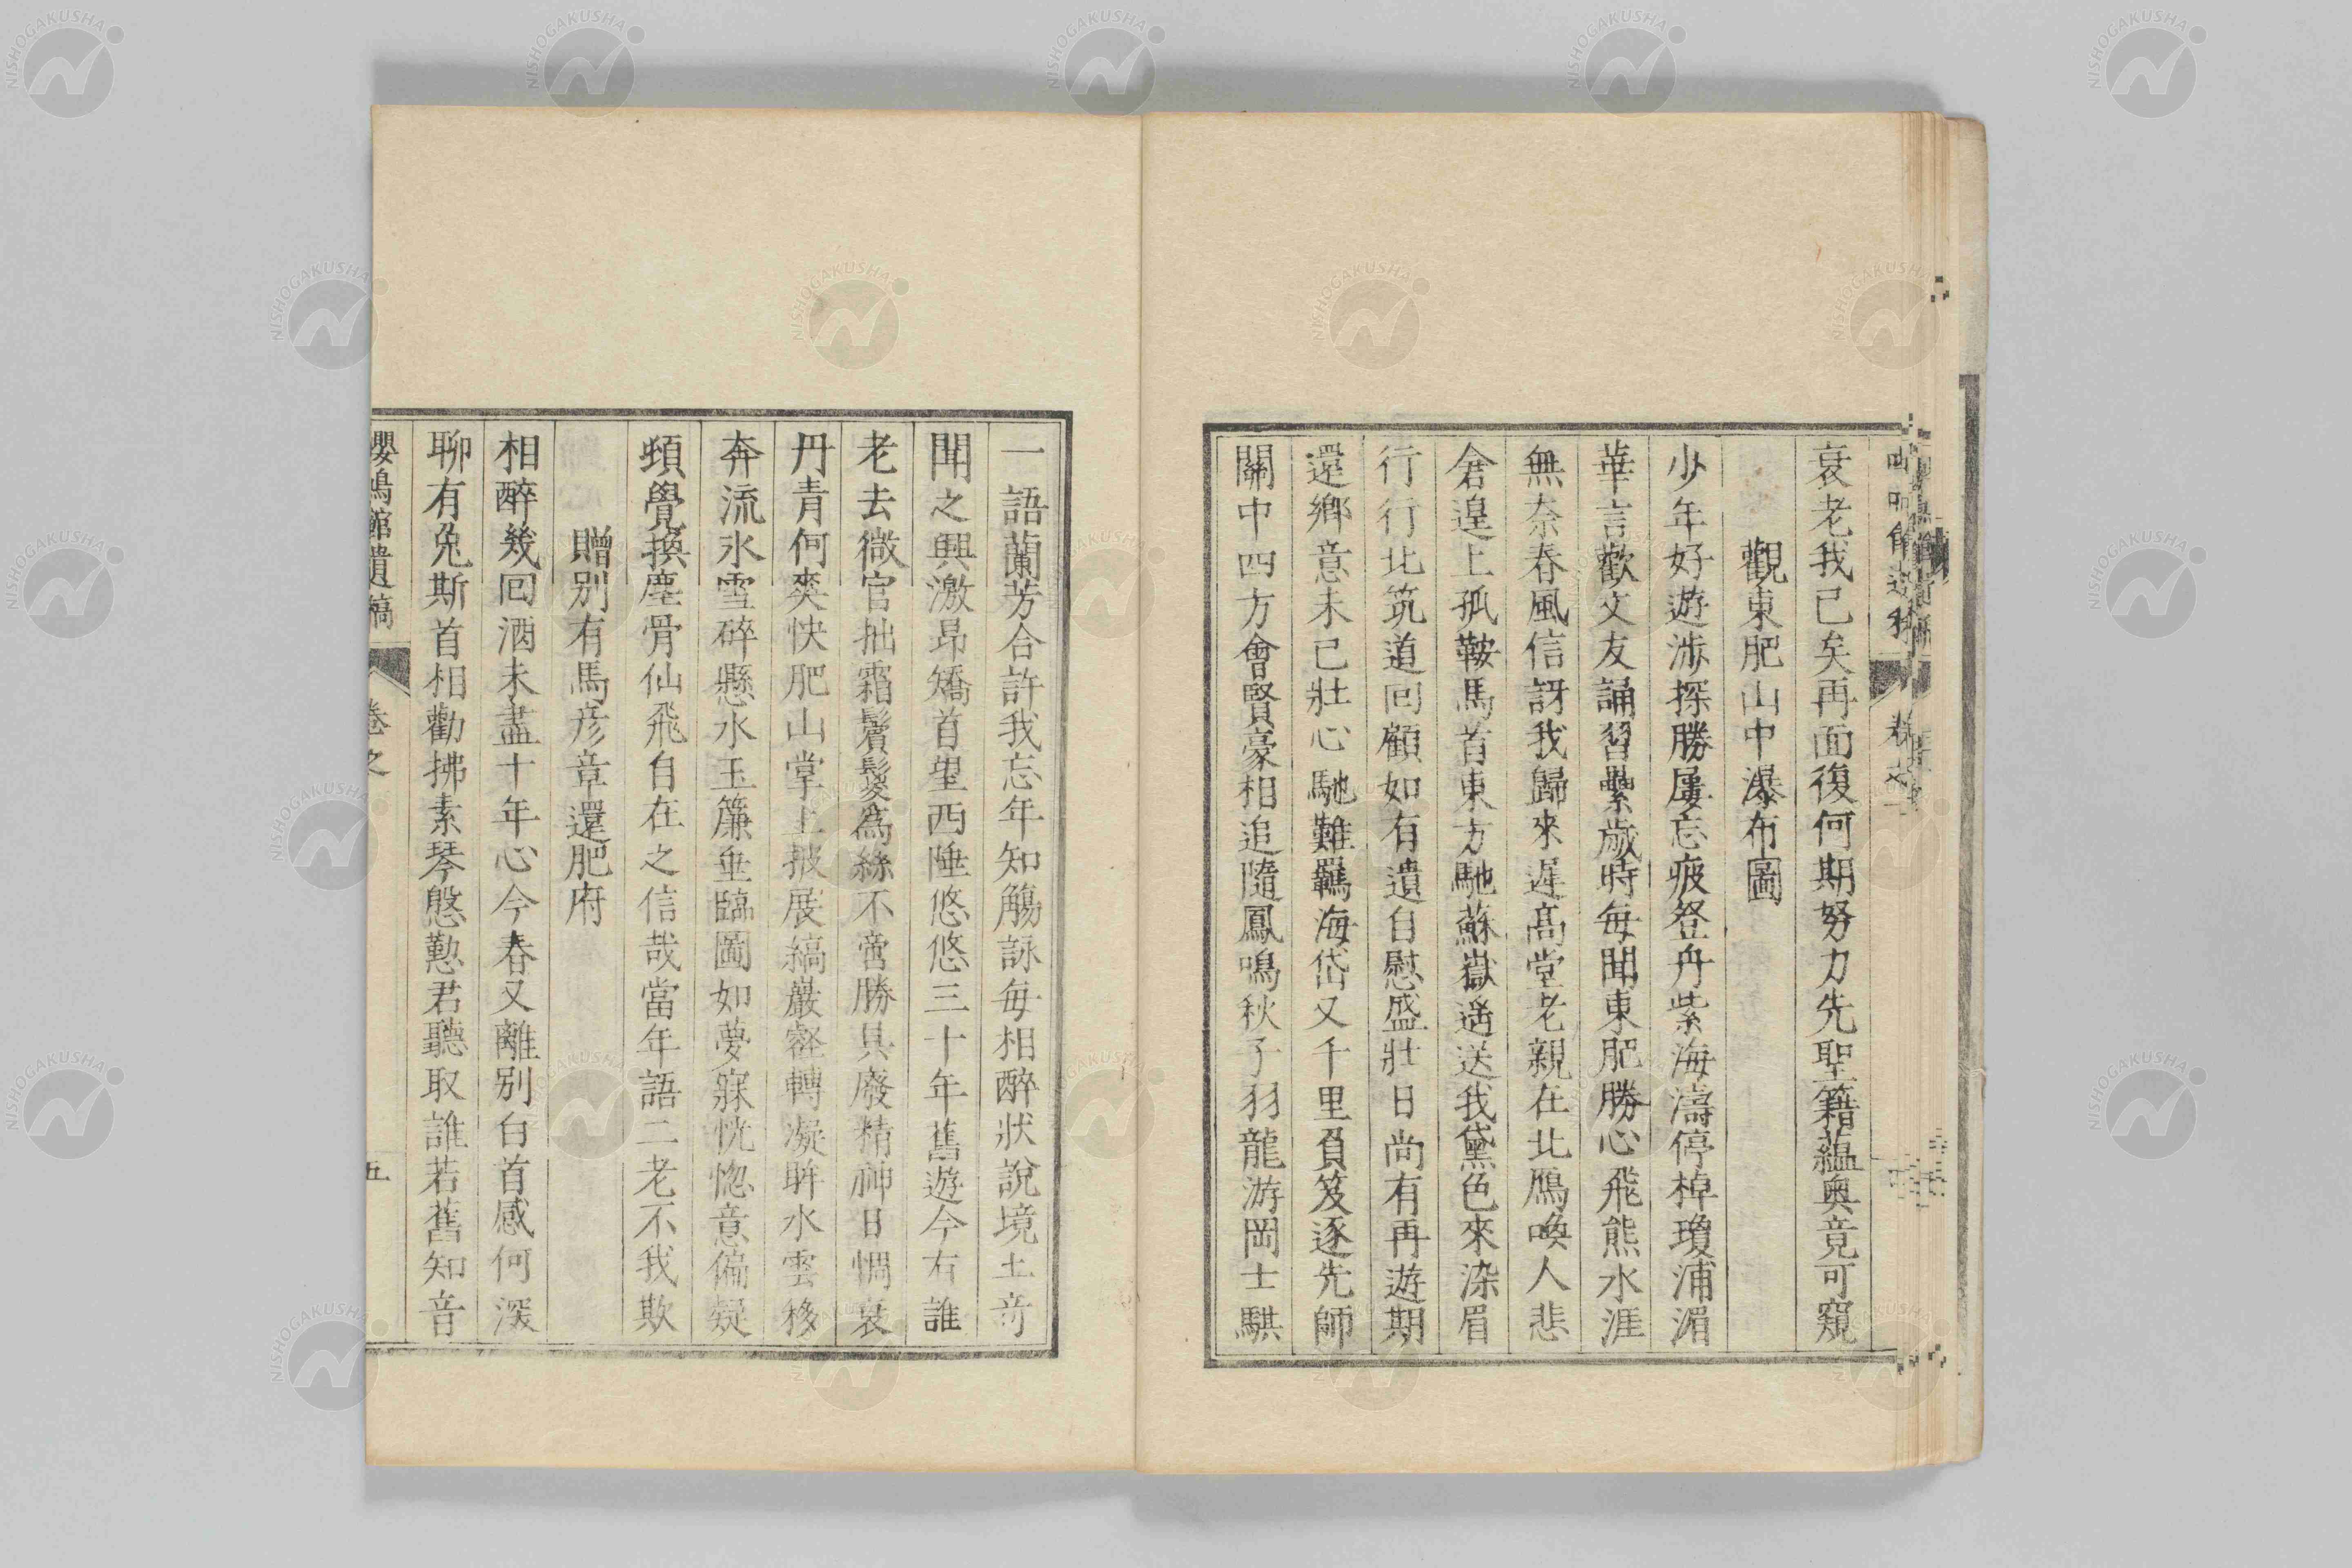 衰老我已矣再面復何期努力先聖籍蘊奥竟可窺
觀東肥山中瀑布圖
少年好遊渉探勝屢忘疲登舟紫海濤停棹瓊浦湄
華言歡文友誦習疊歲時毎聞東肥勝心飛熊水涯
無奈春風信訝我歸來遲髙堂老親在北鴈喚人悲
倉遑上孤鞍馬首東方馳蘇嶽遥送我黛色來染眉
行行北筑道回顧如有遺自慰盛壯日尚有再遊期
還郷意未已壯心馳難羈海岱又千里負笈逐先師
關中四方會賢豪相追隨鳳鳴秋子羽龍游岡士騏
一語蘭芳合許我忘年知觴詠毎相醉狀說境土竒
聞之興激昂矯首望西陲悠悠三十年舊遊今右誰
老去微官拙霜鬢鬓爲絲不啻勝具廢精神日惆衰
丹青何爽快肥山堂上披展縞巖壑轉凝眸水雲移
奔流氷雪碎懸水玉簾垂臨圖如夢寐恍惚意偏疑
頓覺換塵骨仙飛自在之信哉當年語二老不我欺
贈別有馬彦章還肥府
相醉幾回酒未盡十年心今春又離別白首感何深
聊有兔斯首相勸拂素琴慇懃君聽取誰若舊知音
嚶鳴館遺稿 卷之 五